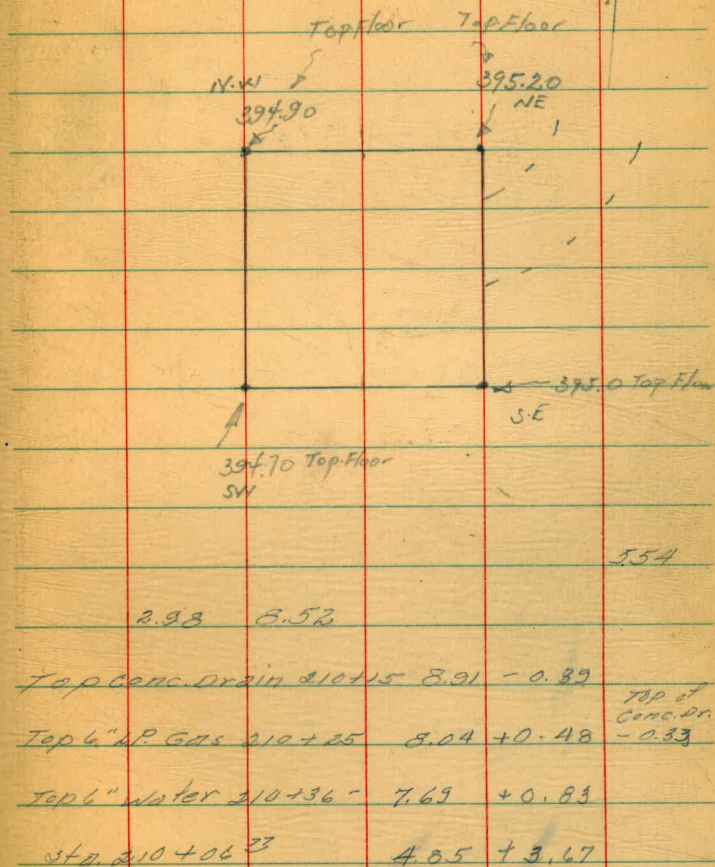 Top Floor Top Floor
N.W 395.20
394.90 NE
395.0 Top Floor
S.E
394.70 Top Floor
SW
5.54
2.98 8.52
Top Conc. Drain 210+15 8.91 - 0.39
Top of
Conc. Dr.
Top 6" Gas 210+25 8.04 +0.48 - 0.33
Top 6" Water 210+36 - 7.69 +0.83
Sta. 210+06 33 4.85 +3.67